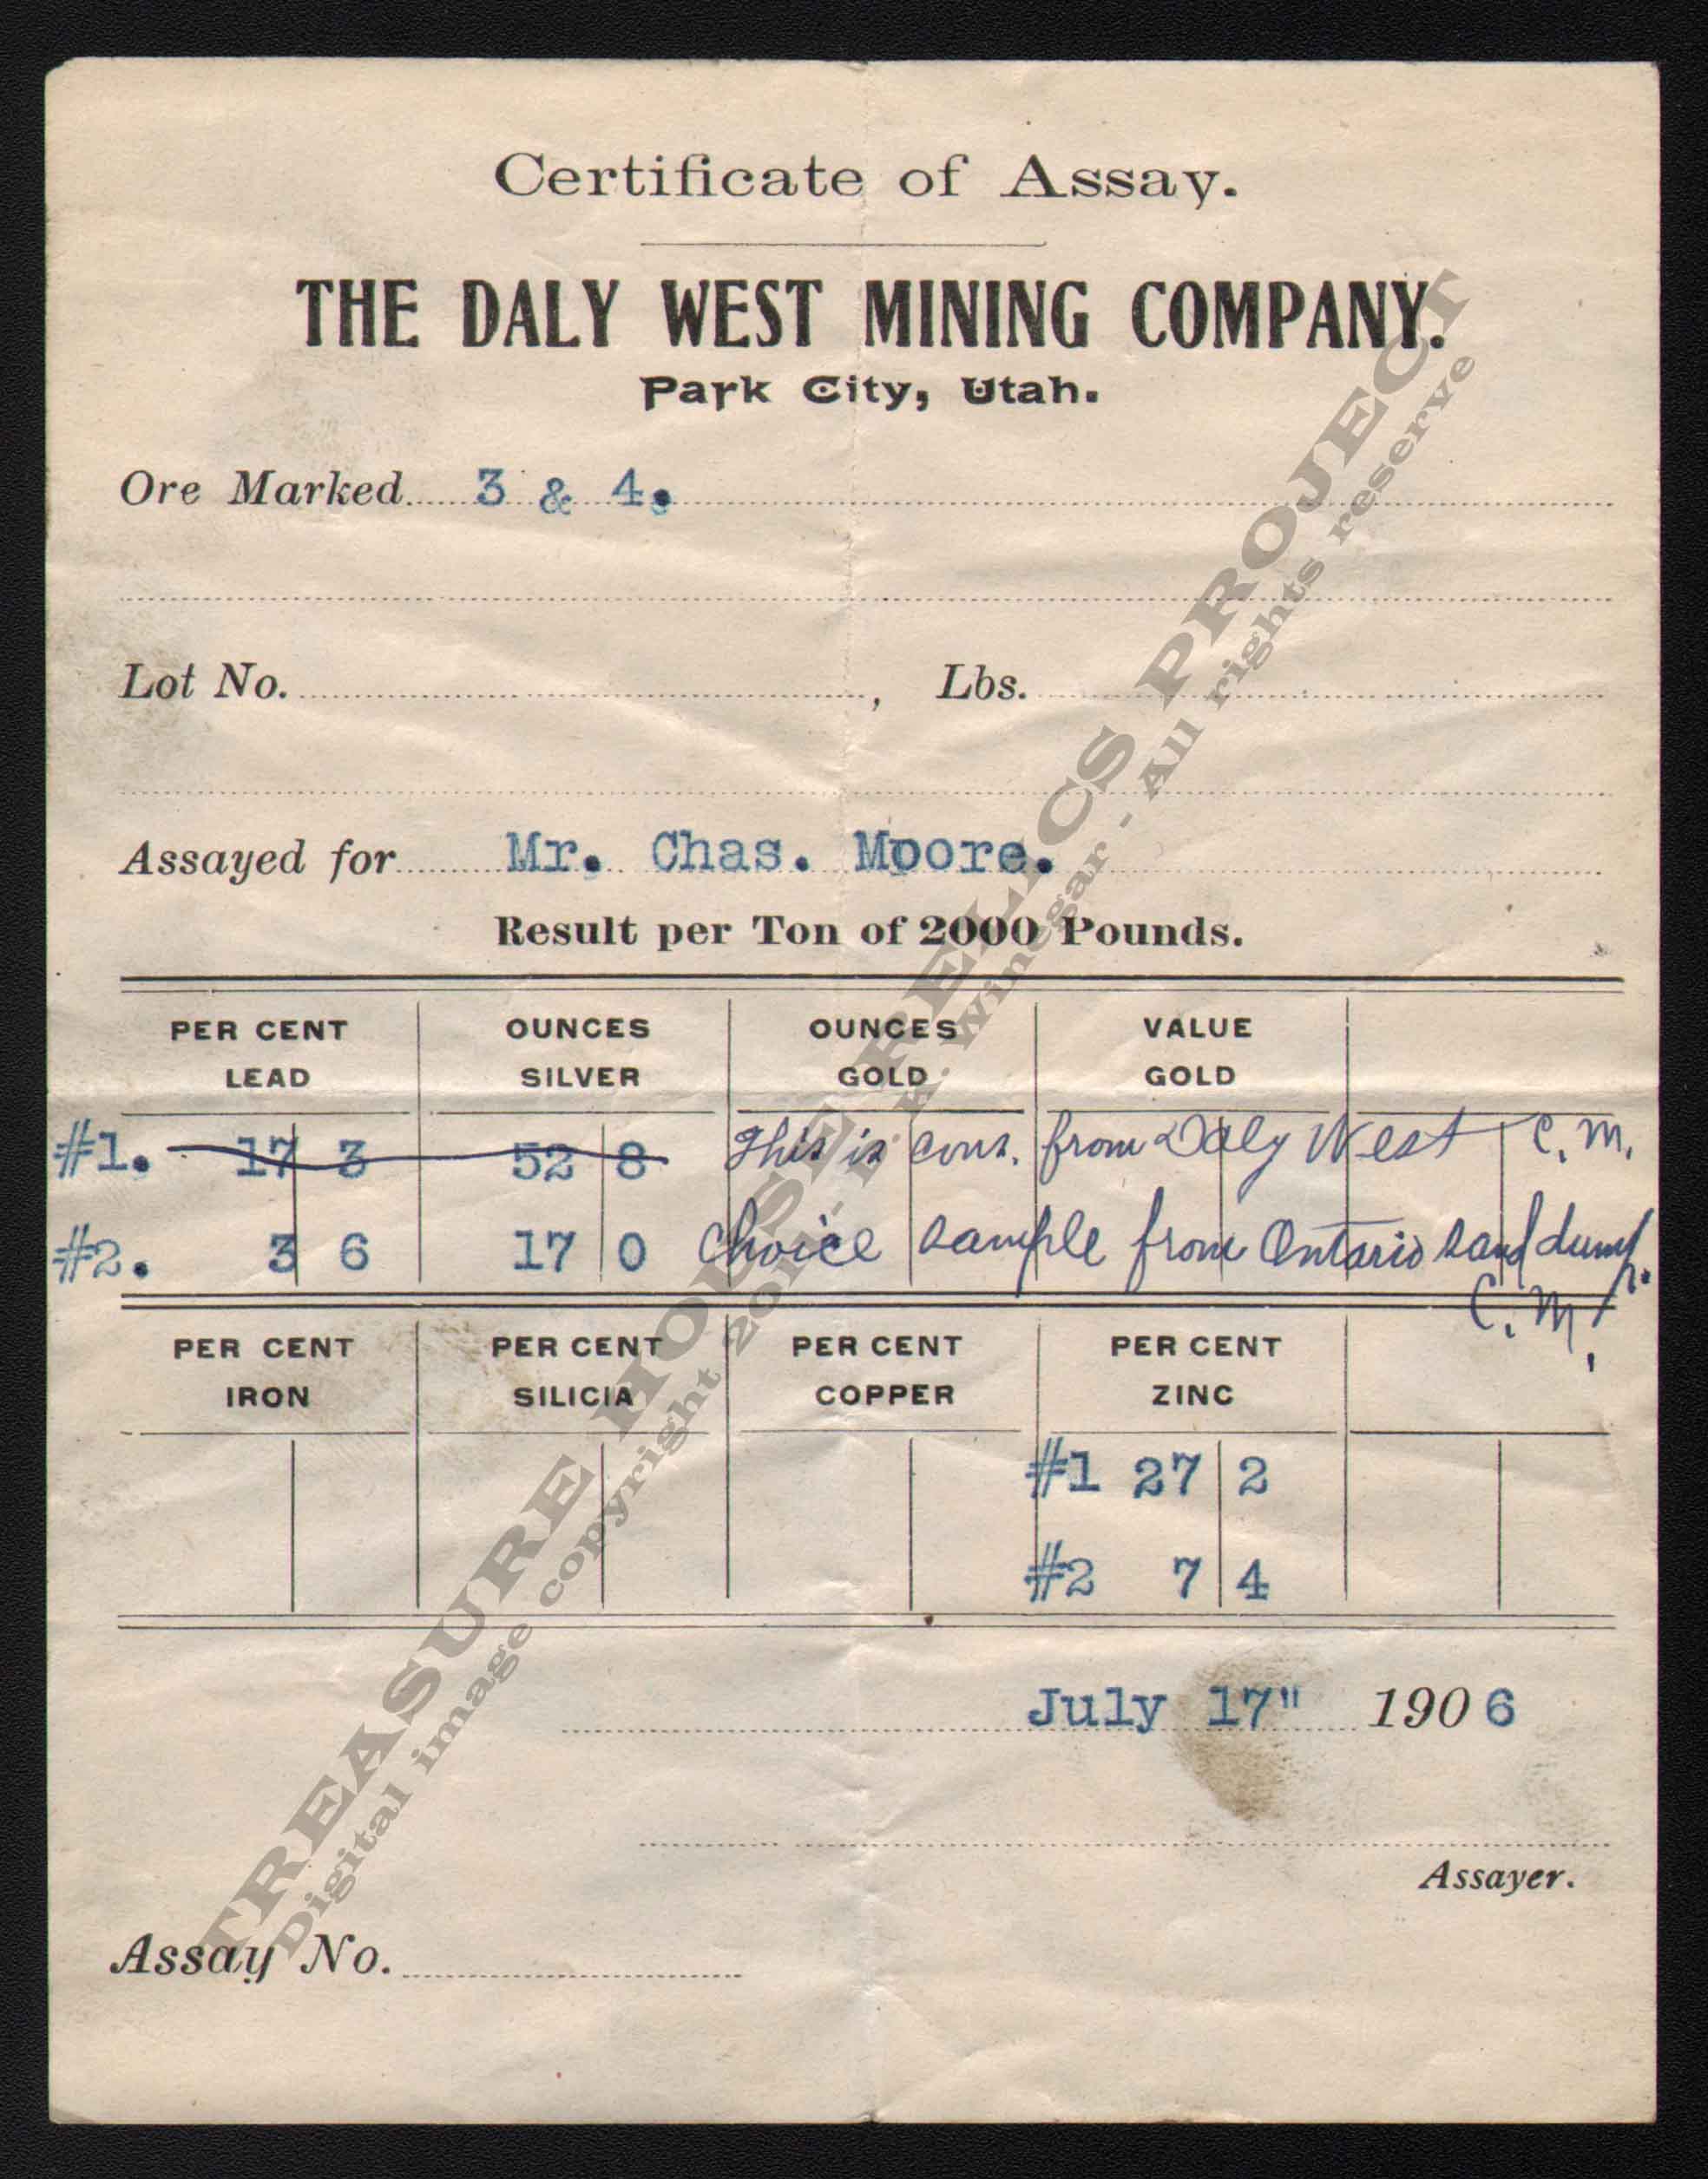 Certificate of Assay.
THE DALY WEST MINING COMPANY.
Park City, Utah.
Ore Marked 3 & 4.
Lot No. , Lbs.
Assayed for Mr. Chas. Moore.
Result per Ton of 2000 Pounds.
PER CENT LEAD OUNCES SILVER OUNCES GOLD VALUE GOLD
#1. 17 3 52 8 This is cons. from Daly West C. M.
#2. 3 6 17 0 Choice sample from Ontario sand dump.
C. M.
PER CENT IRON PER CENT SILICIA PER CENT COPPER PER CENT ZINC
#1 27 2
#2 7 4
July 17" 1906
Assayer.
Assay No.
TREASURE HOUSE RELICS PROJECT
Digital image copyright Winegar - All rights reserve